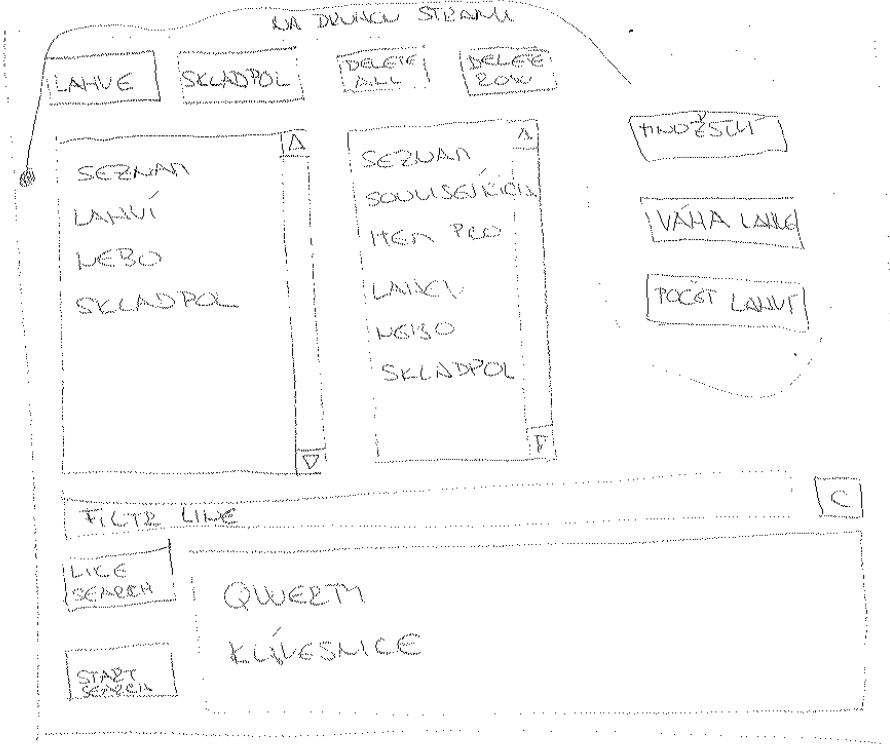 NA DRUHOU STRANU
LAHVE
SKLADPOL
DELETE
ALL
DELETE
ROW
SEZNAM
LAHVÍ
NEBO
SKLADPOL
SEZNAM
SOUVISEJÍCÍCH
ITEM PRO
LAHEV
NEBO
SKLADPOL
MNOŽSTVÍ
VÁHA LAHVE
POČET LAHVÍ
FILTR LINE
C
LIKE
SEARCH
START
SEARCH
QWERTY
KLÁVESNICE